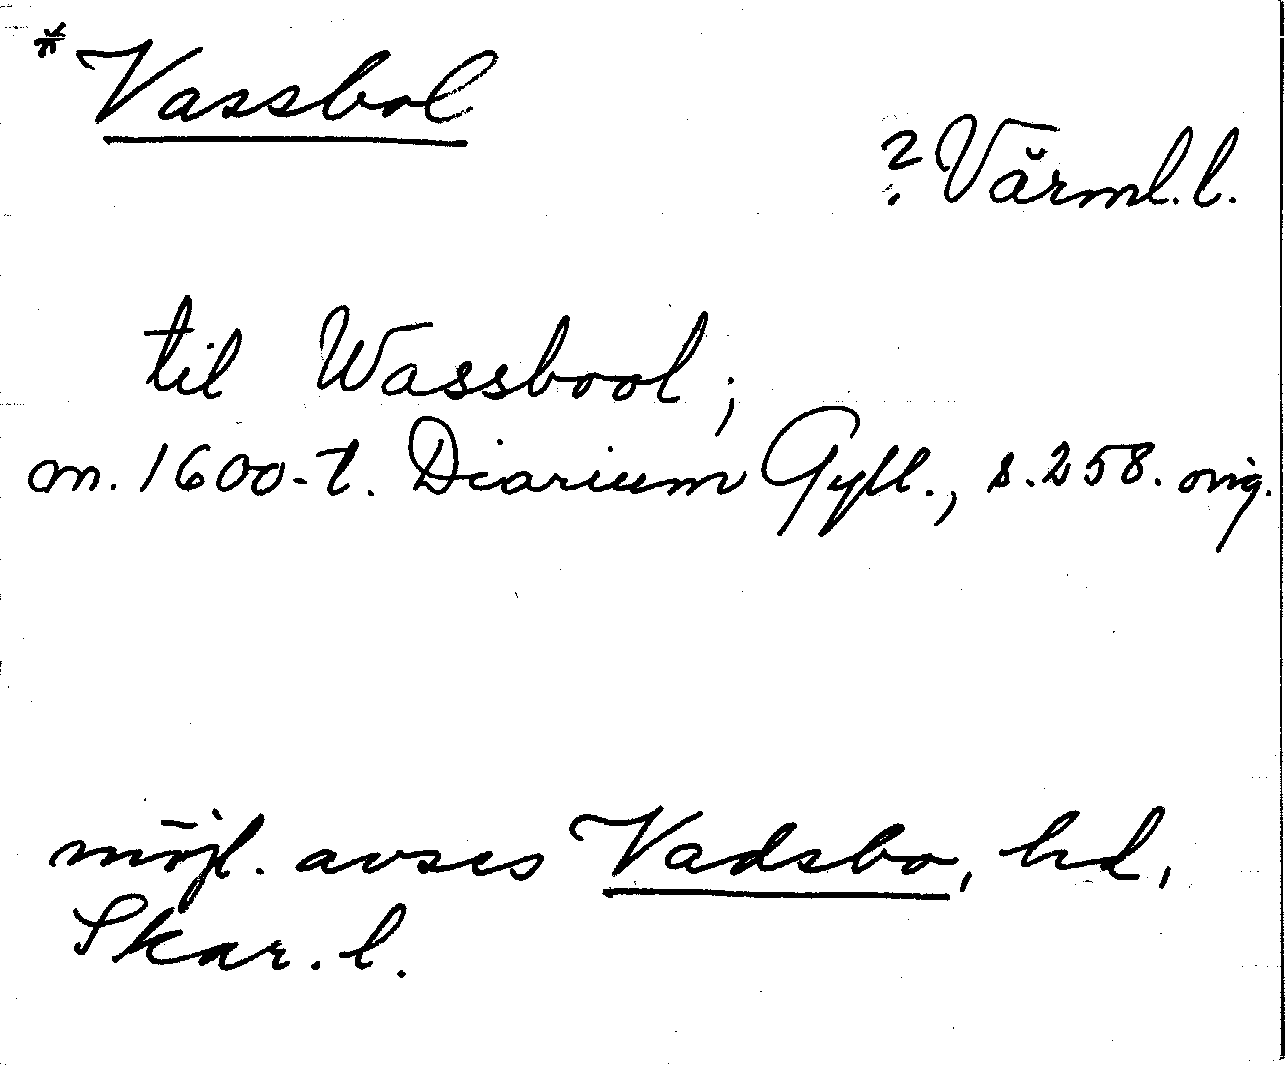 * Vassbol
? Värml. l.
til Wassbool;
m. 1600-t. Diarium Gyll., s. 258. orig.
möjl. avses Vadsbo, hd,
Skar. l.